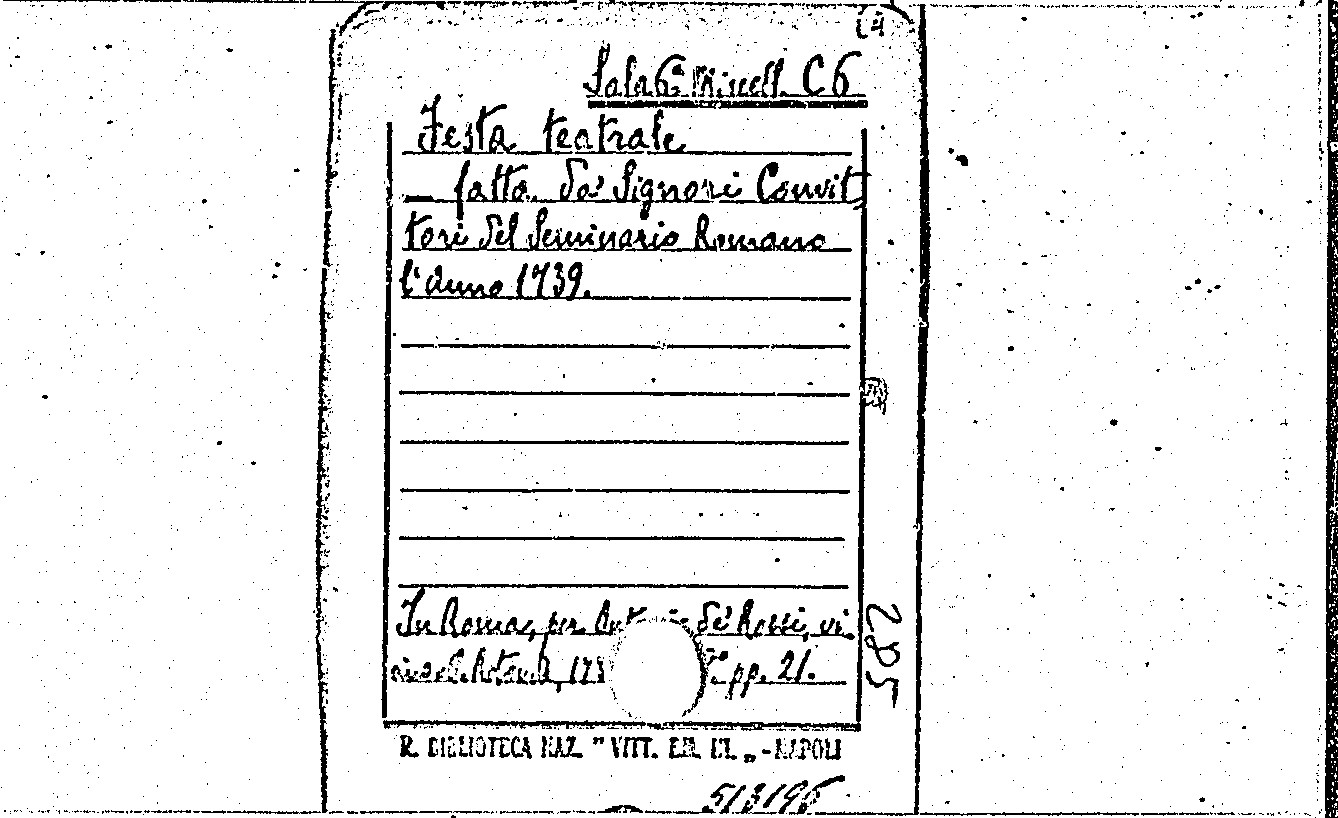 Sala 6ª Miscell. C 6
Festa teatrale
— fatta da' Signori Convit,
tori del Seminario Romano
l'anno 1739.
In Roma, per Antonio de' Rossi, vi,
cino al. Rotonda, 173 pp. 21.
285
R. BIBLIOTECA NAZ. " VITT. EM. III. „ - NAPOLI
513196